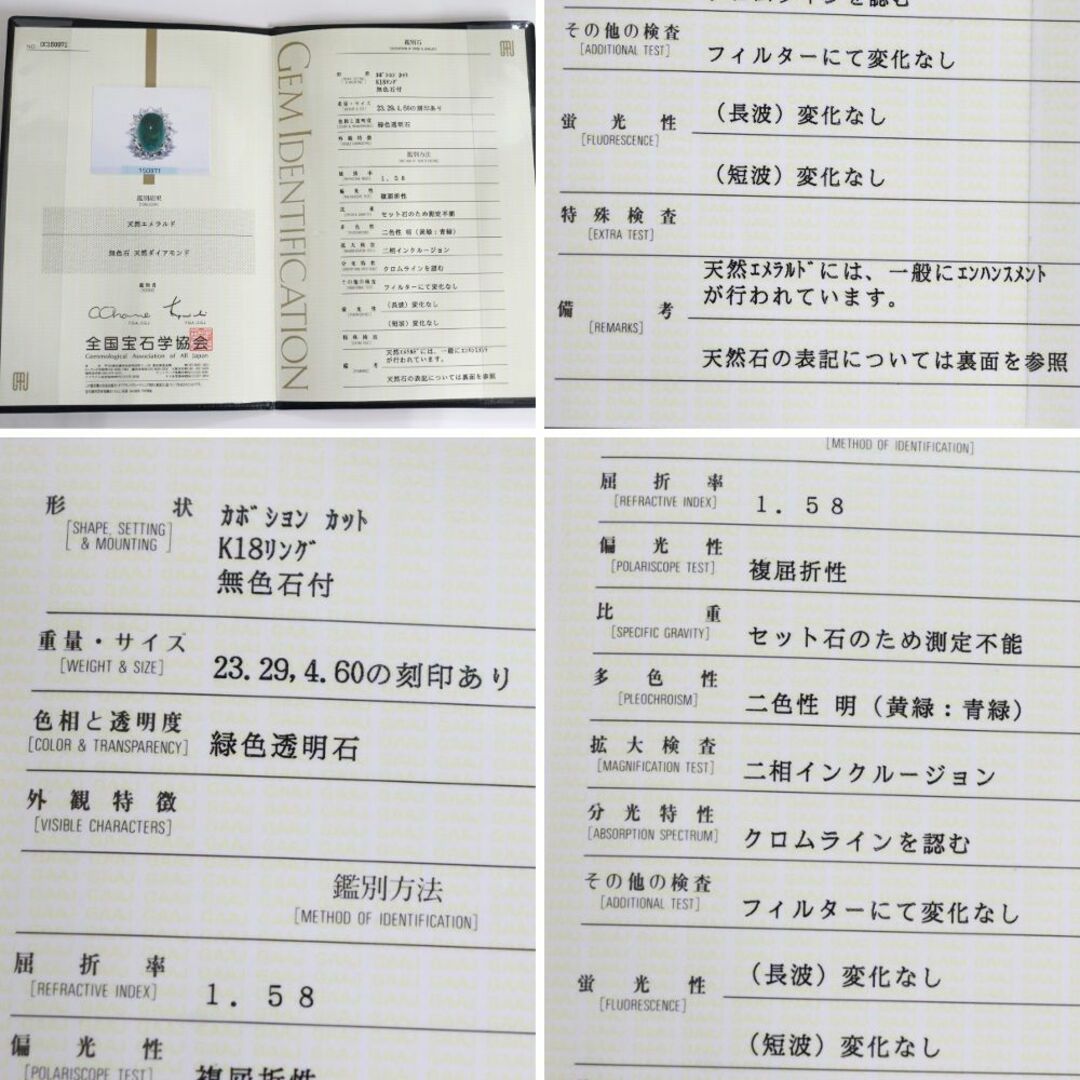 GEM IDENTIFICATION
鑑別結果
天然エメラルド
無色石 天然ダイアモンド
全国宝石学協会
Gemmological Association of All Japan
鑑別石
形 状
カボション カット
K18リング
無色石付
重量・サイズ
23.29,4.60の刻印あり
色相と透明度
緑色透明石
外観特徴
鑑別方法
屈折率
1.58
偏光性
複屈折性
比重
セット石のため測定不能
多色性
二色性 明(黄緑:青緑)
拡大検査
二相インクルージョン
分光特性
クロムラインを認む
その他の検査
フィルターにて変化なし
蛍光性
(長波)変化なし
(短波)変化なし
特殊検査
天然エメラルドには、一般にエンハンスメント
が行われています。
備考
天然石の表記については裏面を参照
クロムラインを認む
その他の検査
[ADDITIONAL TEST]
フィルターにて変化なし
(長波)変化なし
蛍光性
[FLUORESCENCE]
(短波)変化なし
特殊検査
[EXTRA TEST]
天然エメラルドには、一般にエンハンスメント
が行われています。
備考
[REMARKS]
天然石の表記については裏面を参照
形 状
[SHAPE, SETTING
& MOUNTING]
カボション カット
K18リング
無色石付
重量・サイズ
[WEIGHT & SIZE]
23.29,4.60の刻印あり
色相と透明度
[COLOR & TRANSPARENCY]
緑色透明石
外観特徴
[VISIBLE CHARACTERS]
鑑別方法
[METHOD OF IDENTIFICATION]
屈折率
[REFRACTIVE INDEX]
1.58
偏光性
[POLARISCOPE TEST]
複屈折性
[METHOD OF IDENTIFICATION]
屈折率
[REFRACTIVE INDEX]
1.58
偏光性
[POLARISCOPE TEST]
複屈折性
比重
[SPECIFIC GRAVITY]
セット石のため測定不能
多色性
[PLEOCHROISM]
二色性 明(黄緑:青緑)
拡大検査
[MAGNIFICATION TEST]
二相インクルージョン
分光特性
[ABSORPTION SPECTRUM]
クロムラインを認む
その他の検査
[ADDITIONAL TEST]
フィルターにて変化なし
(長波)変化なし
蛍光性
[FLUORESCENCE]
(短波)変化なし